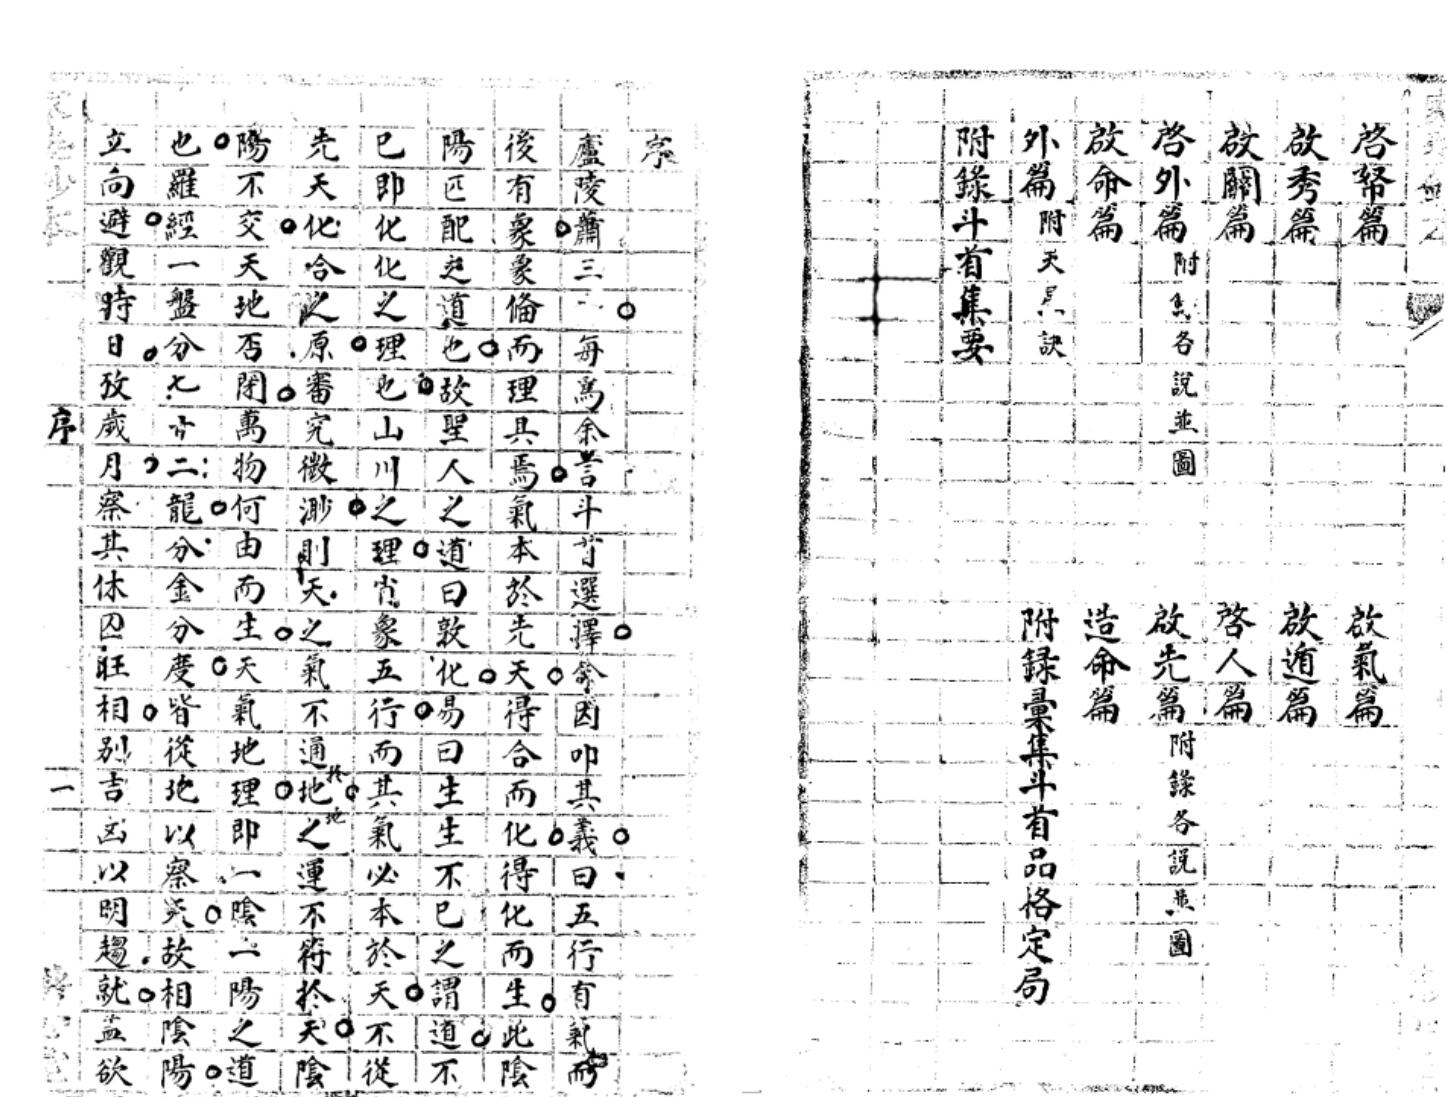 啓幣篇
啟秀篇
啟關篇
啓外篇 附 各說並圖
啟命篇
外篇 附天 訣
附錄斗首集要
啟氣篇
啟遁篇
啓人篇
啟先篇 附錄各說並圖
造命篇
附録彙集斗首品格定局
序
廬陵蕭三 每爲余言斗首選擇 因叩其義曰五行有氣而
後有象象俻而理具焉氣本於先天得合而化得化而生此陰
陽匹配之道也故聖人之道曰敦化易曰生生不已之謂道不
已即化化之理也山川之理肖象五行而其氣必本於天不從
先天化合之原審究微渺則天之氣不通於地地之運不符於天陰
陽不交天地否閉萬物何由而生天氣地理即一陰一陽之道
也羅經一盤分七十二龍分金分度皆從地以察天故相陰陽
立向避觀時日攷歲月察其休囚旺相別吉凶以明趨就盖欲
序
一